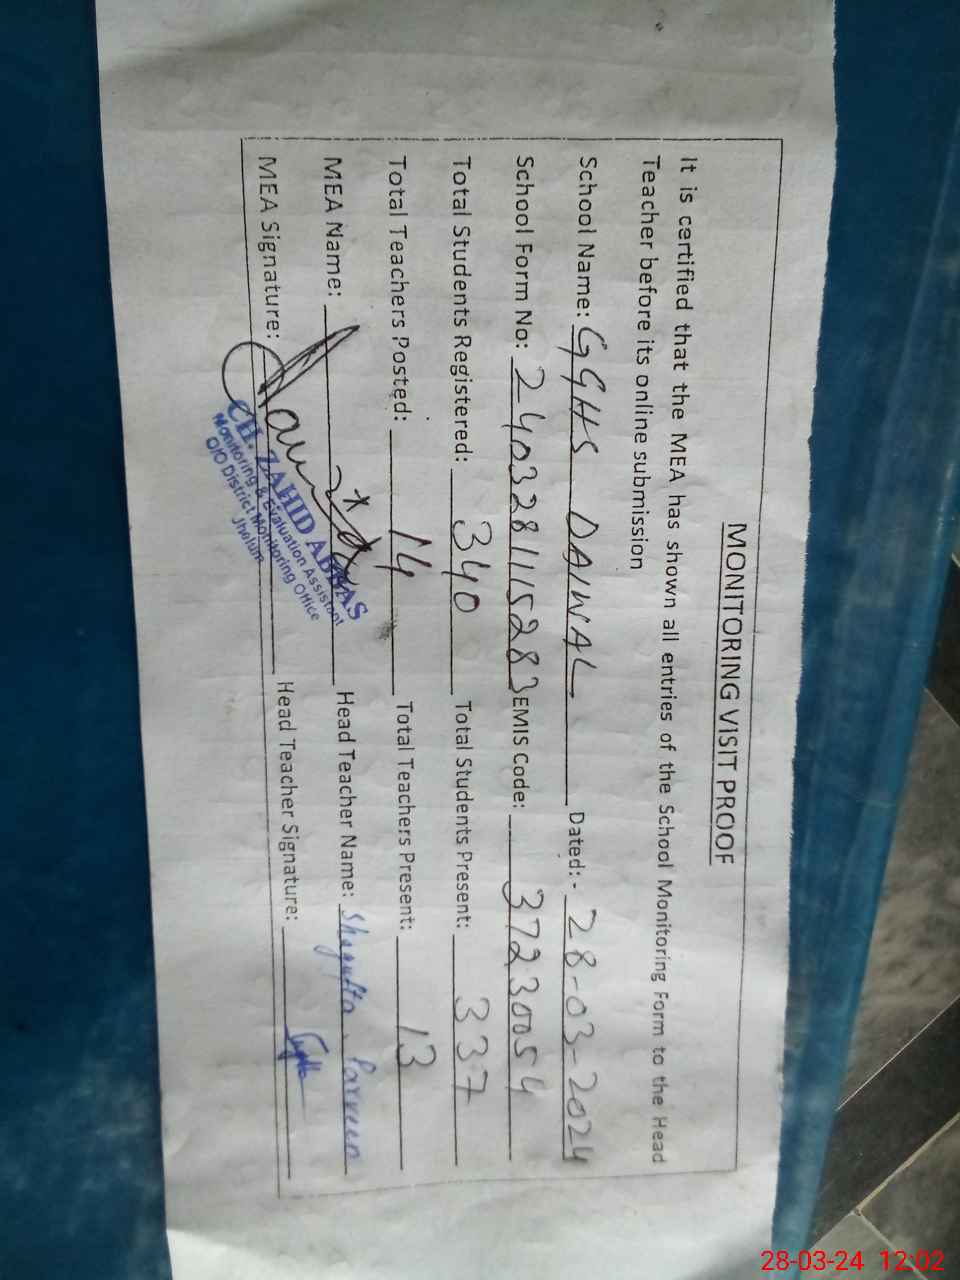 MONITORING VISIT PROOF
It is certified that the MEA has shown all entries of the School Monitoring Form to the Head
Teacher before its online submission
School Name: GGHS DAIWAL Dated:- 28-03-2024
School Form No: 2403281115283 EMIS Code: 37230054
Total Students Registered: 340 Total Students Present: 337
Total Teachers Posted: 14 Total Teachers Present: 13
MEA Name: Head Teacher Name: Shagufta Parveen
MEA Signature: Head Teacher Signature:
CH. ZAHID ABBAS
Monitoring & Evaluation Assistant
O/O District Monitoring Office
Jhelum
28-03-24 12:02